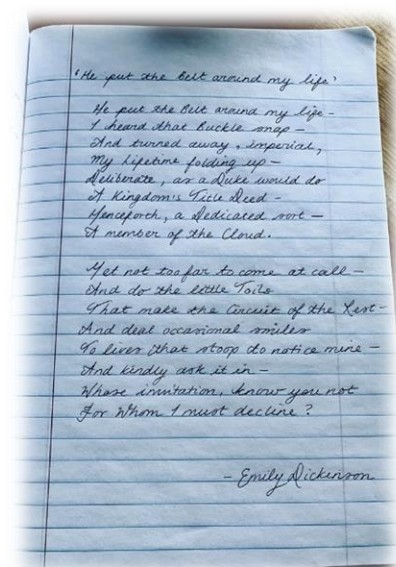 'He put the Belt around my life'
He put the Belt around my life –
I heard that Buckle snap –
And turned away, imperial,
My Lifetime folding up –
Deliberate, as a Duke would do
A Kingdom's Title Deed –
Henceforth, a Dedicated sort –
A member of the Cloud.
Yet not too far to come at call –
And do the little Toils
That make the Circuit of the Rest –
And deal occasional smiles
To lives that stoop to notice mine –
And kindly ask it in –
Whose invitation, know you not
For Whom I must decline?
– Emily Dickinson